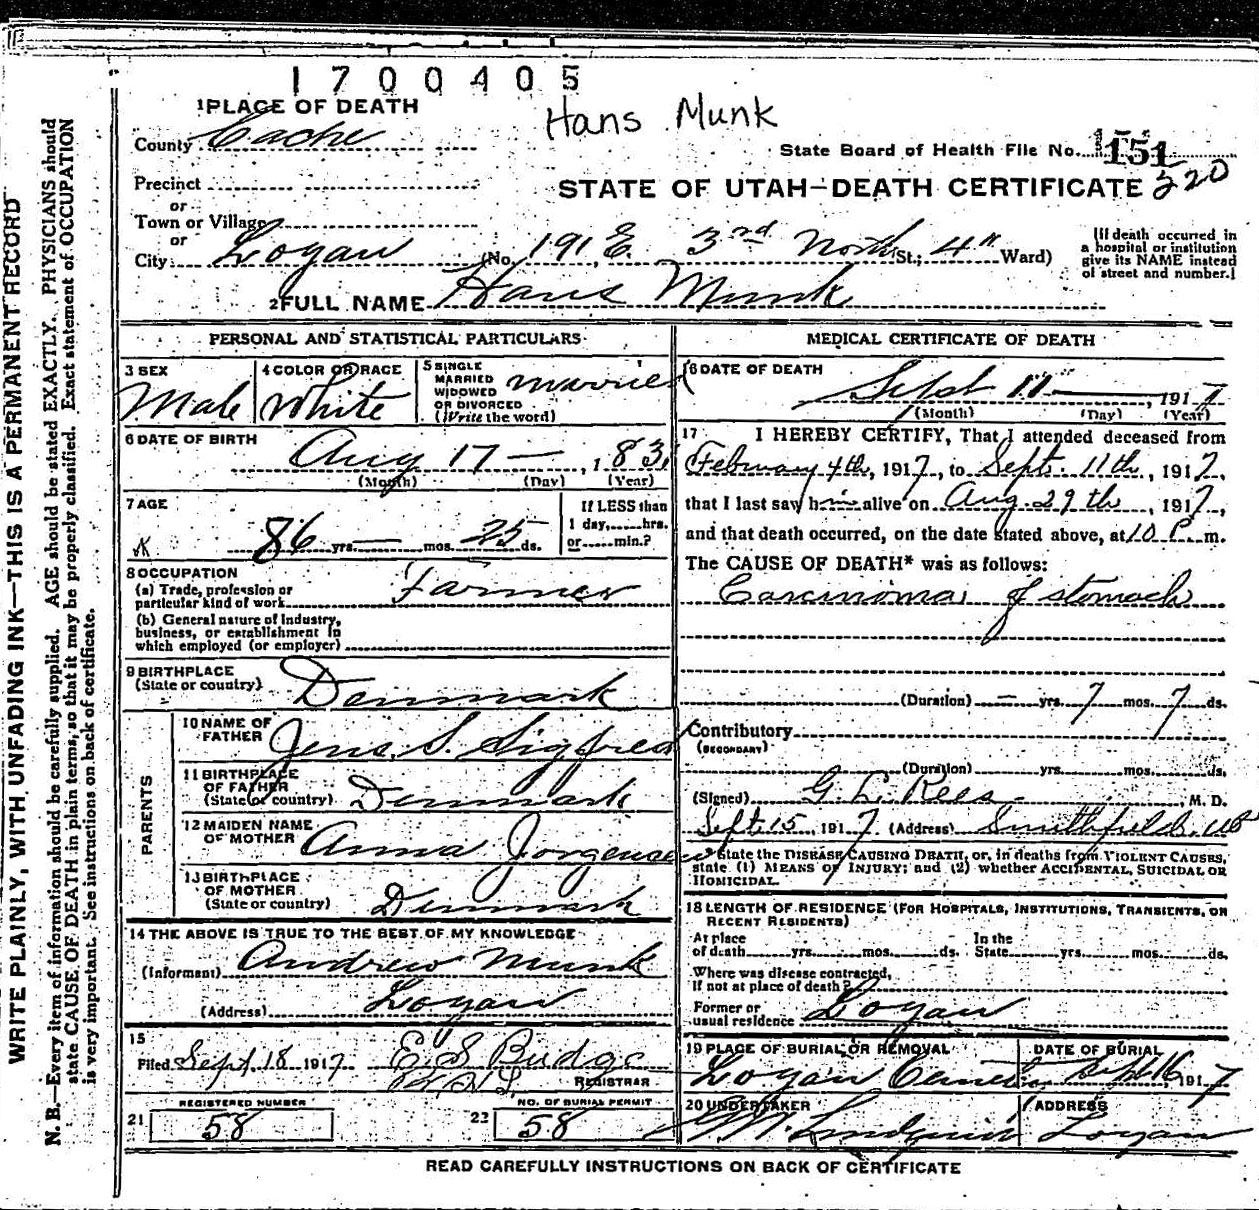 1700405
Hans Munk
1 PLACE OF DEATH
County Cache
State Board of Health File No. 151
Precinct
STATE OF UTAH—DEATH CERTIFICATE 320
or
Town or Village
or
City Logan (No. 191 E. 3rd North St.; 4" Ward)
[If death occurred in
a hospital or institution
give its NAME instead
of street and number.]
2 FULL NAME Hans Munk
PERSONAL AND STATISTICAL PARTICULARS
3 SEX
Male
4 COLOR OR RACE
White
5 SINGLE
MARRIED
WIDOWED
OR DIVORCED
(Write the word)
Married
6 DATE OF BIRTH
Aug 17 — , 1 83
(Month) (Day) (Year)
7 AGE
86 yrs. — mos. 25 ds.
If LESS than
1 day,......hrs.
or......min.?
8 OCCUPATION
(a) Trade, profession or
particular kind of work Farmer
(b) General nature of industry,
business, or establishment in
which employed (or employer)
9 BIRTHPLACE
(State or country) Denmark
PARENTS
10 NAME OF
FATHER Jens. S. Sigfred
11 BIRTHPLACE
OF FATHER
(State or country) Denmark
12 MAIDEN NAME
OF MOTHER Anna Jorgensen
13 BIRTHPLACE
OF MOTHER
(State or country) Denmark
14 THE ABOVE IS TRUE TO THE BEST OF MY KNOWLEDGE
(Informant) Andrew Munk
(Address) Logan
15
Filed Sept 18 1917 E S Budge
REGISTRAR
REGISTERED NUMBER
21 58
NO. OF BURIAL PERMIT
22 58
MEDICAL CERTIFICATE OF DEATH
16 DATE OF DEATH
Sept 11 — , 1917
(Month) (Day) (Year)
17 I HEREBY CERTIFY, That I attended deceased from
February 4th, 1917, to Sept. 11th, 1917,
that I last saw him alive on Aug. 29th, 1917,
and that death occurred, on the date stated above, at 10 P. m.
The CAUSE OF DEATH* was as follows:
Carcinoma of stomach
(Duration) — yrs. 7 mos. 7 ds.
Contributory
(SECONDARY)
(Duration) yrs. mos. ds.
(Signed) G. L. Rees, M. D.
Sept. 15, 1917 (Address) Smithfield, Ut
*State the DISEASE CAUSING DEATH, or, in deaths from VIOLENT CAUSES,
state (1) MEANS OF INJURY; and (2) whether ACCIDENTAL, SUICIDAL OR
HOMICIDAL.
18 LENGTH OF RESIDENCE (FOR HOSPITALS, INSTITUTIONS, TRANSIENTS, OR
RECENT RESIDENTS)
At place
of death......yrs......mos......ds.
In the
State......yrs......mos......ds.
Where was disease contracted,
If not at place of death?
Former or
usual residence Logan
19 PLACE OF BURIAL OR REMOVAL
Logan
DATE OF BURIAL
Sept 16 1917
20 UNDERTAKER
Lindquist
ADDRESS
Logan
READ CAREFULLY INSTRUCTIONS ON BACK OF CERTIFICATE
WRITE PLAINLY, WITH UNFADING INK—THIS IS A PERMANENT RECORD
N. B.—Every item of information should be carefully supplied. AGE should be stated EXACTLY. PHYSICIANS should
state CAUSE OF DEATH in plain terms, so that it may be properly classified. Exact statement of OCCUPATION
is very important. See instructions on back of certificate.